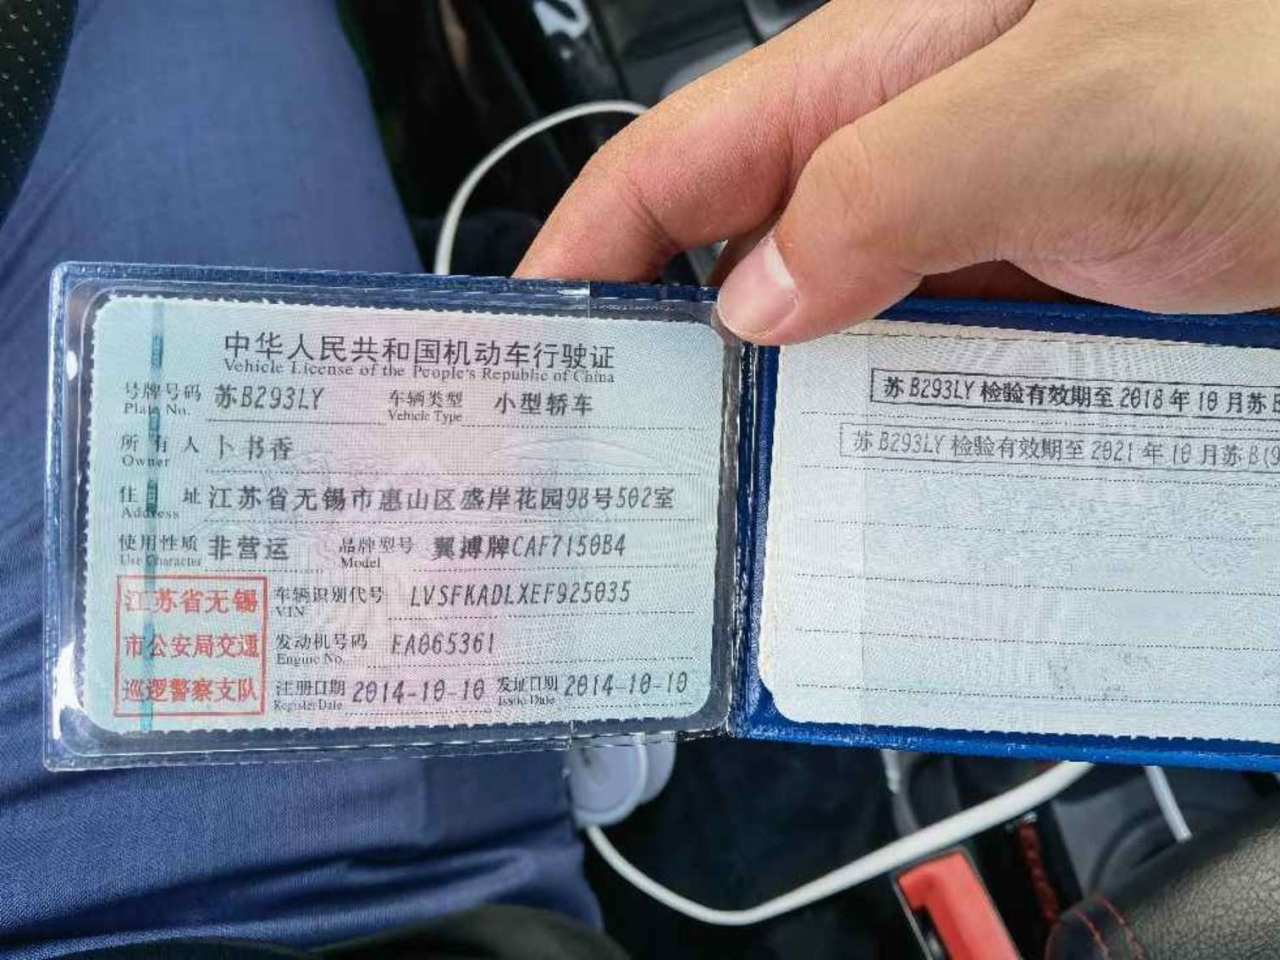 中华人民共和国机动车行驶证
Vehicle License of the People's Republic of China
号牌号码 苏B293LY 车辆类型 小型轿车
Plate No. Vehicle Type
所有人 卜书香
Owner
住址 江苏省无锡市惠山区盛岸花园98号502室
Address
使用性质 非营运 品牌型号 翼搏牌CAF7150B4
Use Character Model
江苏省无锡
市公安局交通
巡逻警察支队
车辆识别代号 LVSFKADLXEF925035
VIN
发动机号码 EA065361
Engine No.
注册日期 2014-10-10 发证日期 2014-10-10
Register Date Issue Date
苏B293LY 检验有效期至 2018 年 10 月苏B
苏B293LY 检验有效期至 2021 年 10 月苏B(9